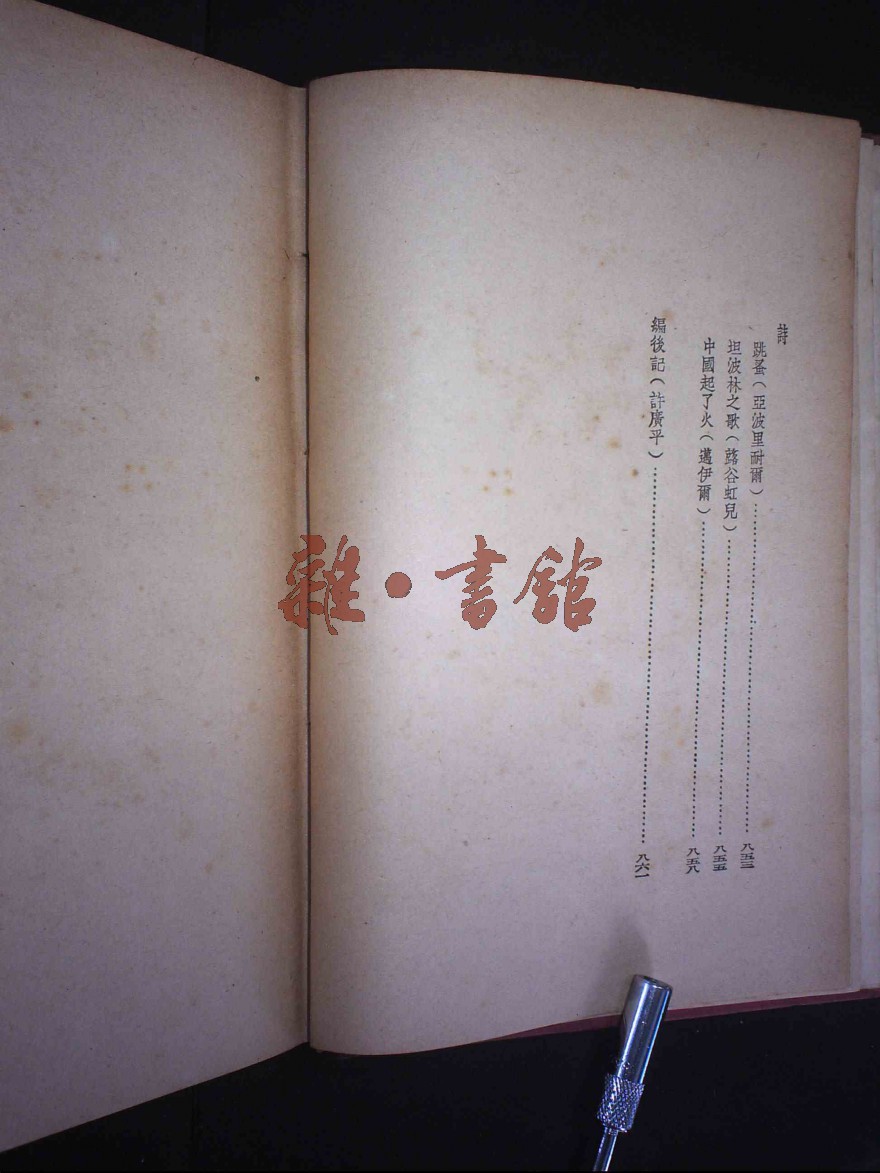 詩
跳蚤(亞波里耐爾)……八五三
坦波林之歌(蕗谷虹兒)……八五五
中國起了火(邁伊爾)……八五八
編後記(許廣平)……八六一
雜·書館